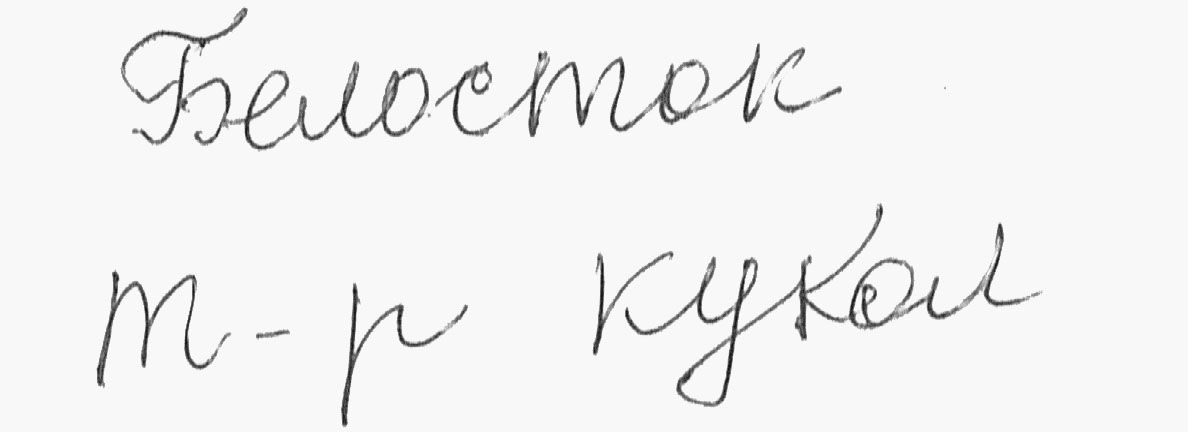 Белосток
т-р кукол